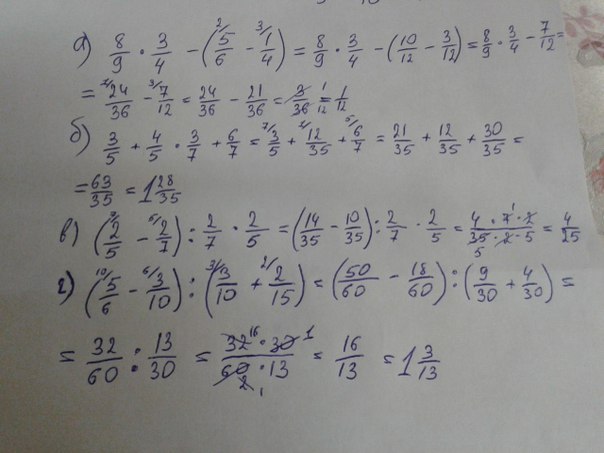 а) 8/9 · 3/4 − (²⁄5/6 − ³⁄1/4) = 8/9 · 3/4 − (10/12 − 3/12) = 8/9 · 3/4 − 7/12 =
= 24/36 − ³⁄7/12 = 24/36 − 21/36 = 3/36 = 1/12
б) 3/5 + 4/5 · 3/7 + 6/7 = ⁷⁄3/5 + 12/35 + ⁵⁄6/7 = 21/35 + 12/35 + 30/35 =
= 63/35 = 1 28/35
в) (2/5 − ⁵⁄2/7) : 2/7 · 2/5 = (14/35 − 10/35) : 2/7 · 2/5 = 4 · 7 ¹ · 2 / 35 · 2 · 5 = 4/25
5
г) (¹⁰⁄5/6 − ⁶⁄3/10) : (³⁄3/10 + ²⁄2/15) = (50/60 − 18/60) : (9/30 + 4/30) =
= 32/60 : 13/30 = 32 ¹⁶ · 30 ¹ / 60 · 13 = 16/13 = 1 3/13
2 1